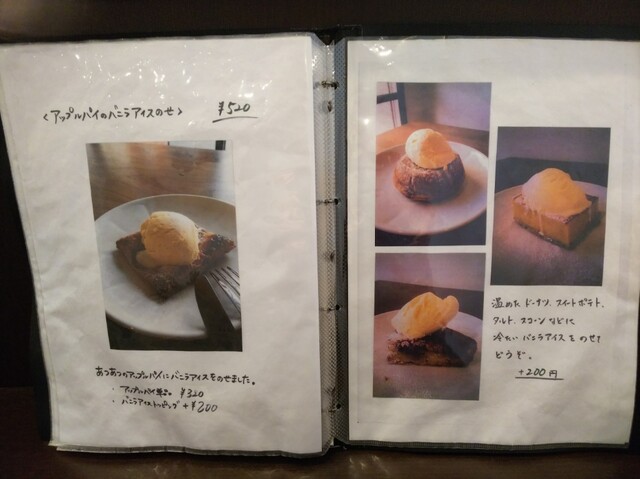 <アップルパイのバニラアイスのせ> ¥520
あつあつのアップルパイにバニラアイスをのせました。
・アップルパイ単品 ¥320
・バニラアイストッピング +¥200
温めたドーナツ、スイートポテト、
タルト、スコーンなどに
冷たいバニラアイスをのせて
どうぞ。
+200円